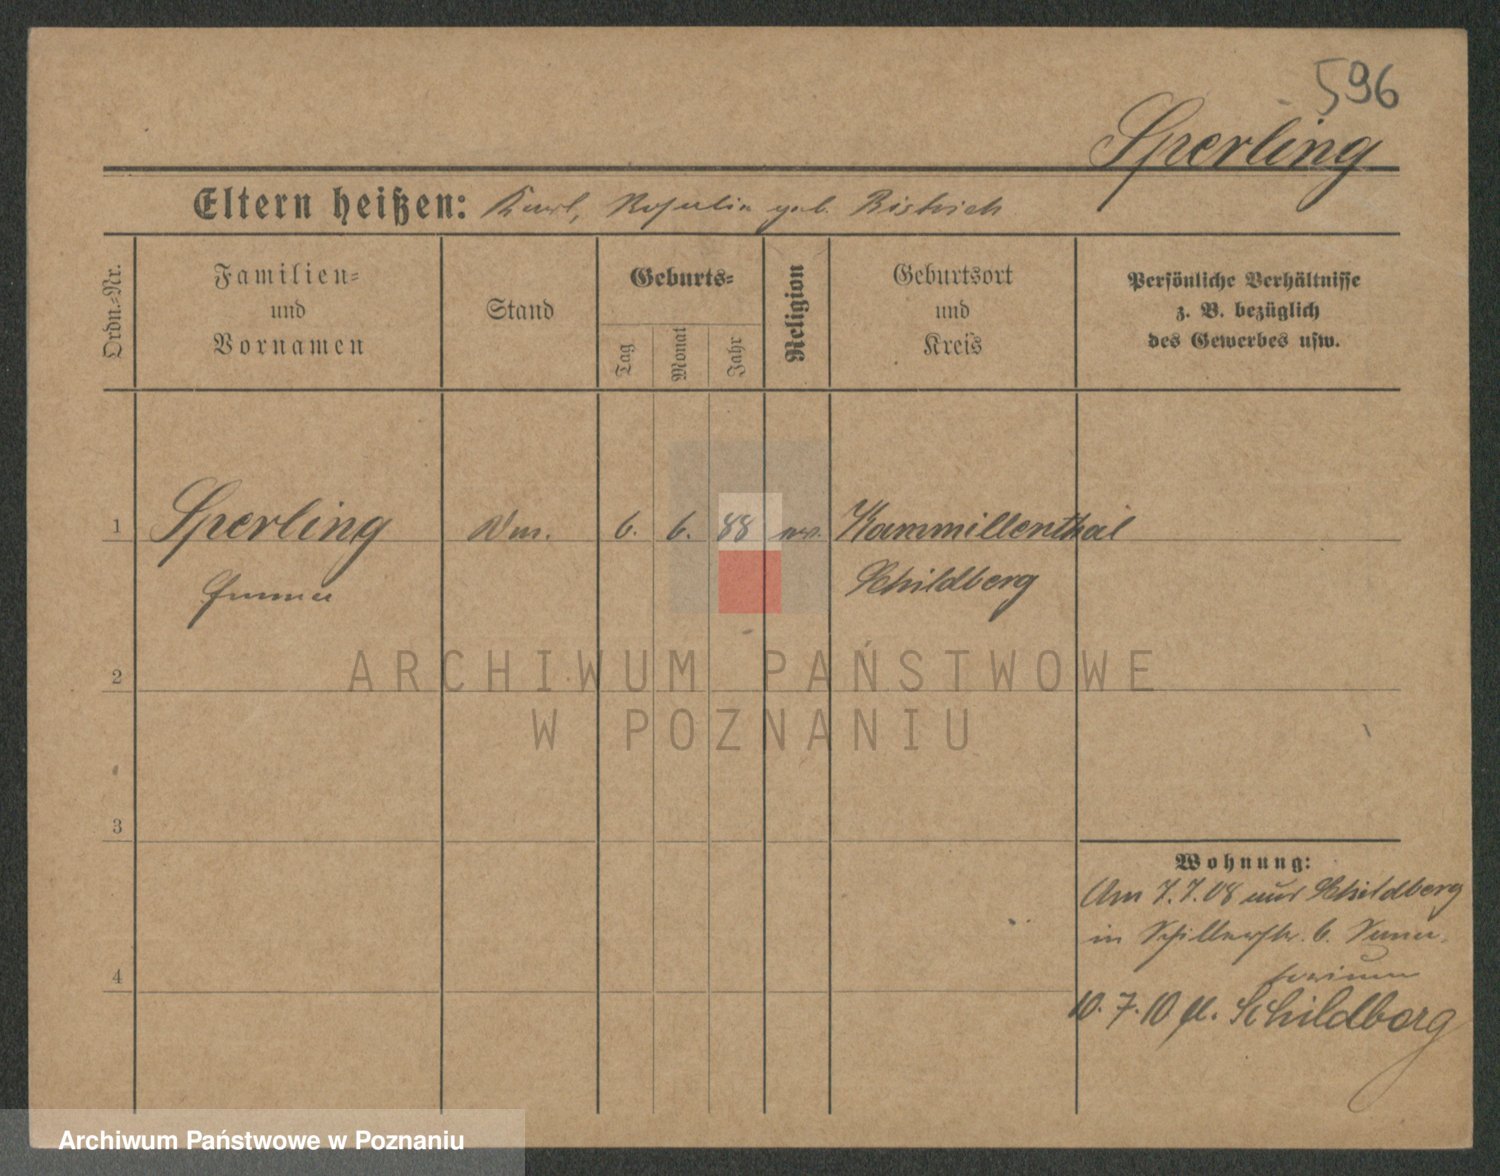 596
Sperling
Eltern heißen: Karl, Rosalia geb. Bistrich
Ordn.-Nr.
Familien-
und
Vornamen
Stand
Geburts-
Tag
Monat
Jahr
Religion
Geburtsort
und
Kreis
Persönliche Verhältnisse
z. B. bezüglich
des Gewerbes usw.
1 Sperling 6. 6. 88 Kammillenthal
Schildberg
2
3
4
Wohnung:
Am 7.7.08 aus Schildberg
in Schillerstr. 6.
10. 7. 10 Schildberg
ARCHIWUM PAŃSTWOWE
W POZNANIU
Archiwum Państwowe w Poznaniu